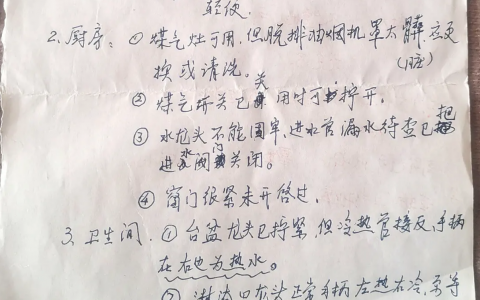 轻便.
2. 厨房: ① 煤气灶可用, 但脱排油烟机罩太髒应更
(脏)
换或请洗。
② 煤气开关已关 用时可拧开.
③ 水龙头不能固牢, 进水管漏水待查已把
进水阀门关闭。
④ 窗门很紧未开启过.
3. 卫生间. ① 台盆龙头已拧紧, 但冷热管接反, 手柄
在右也为热水。
② 淋浴口龙头正常手柄左热右冷,